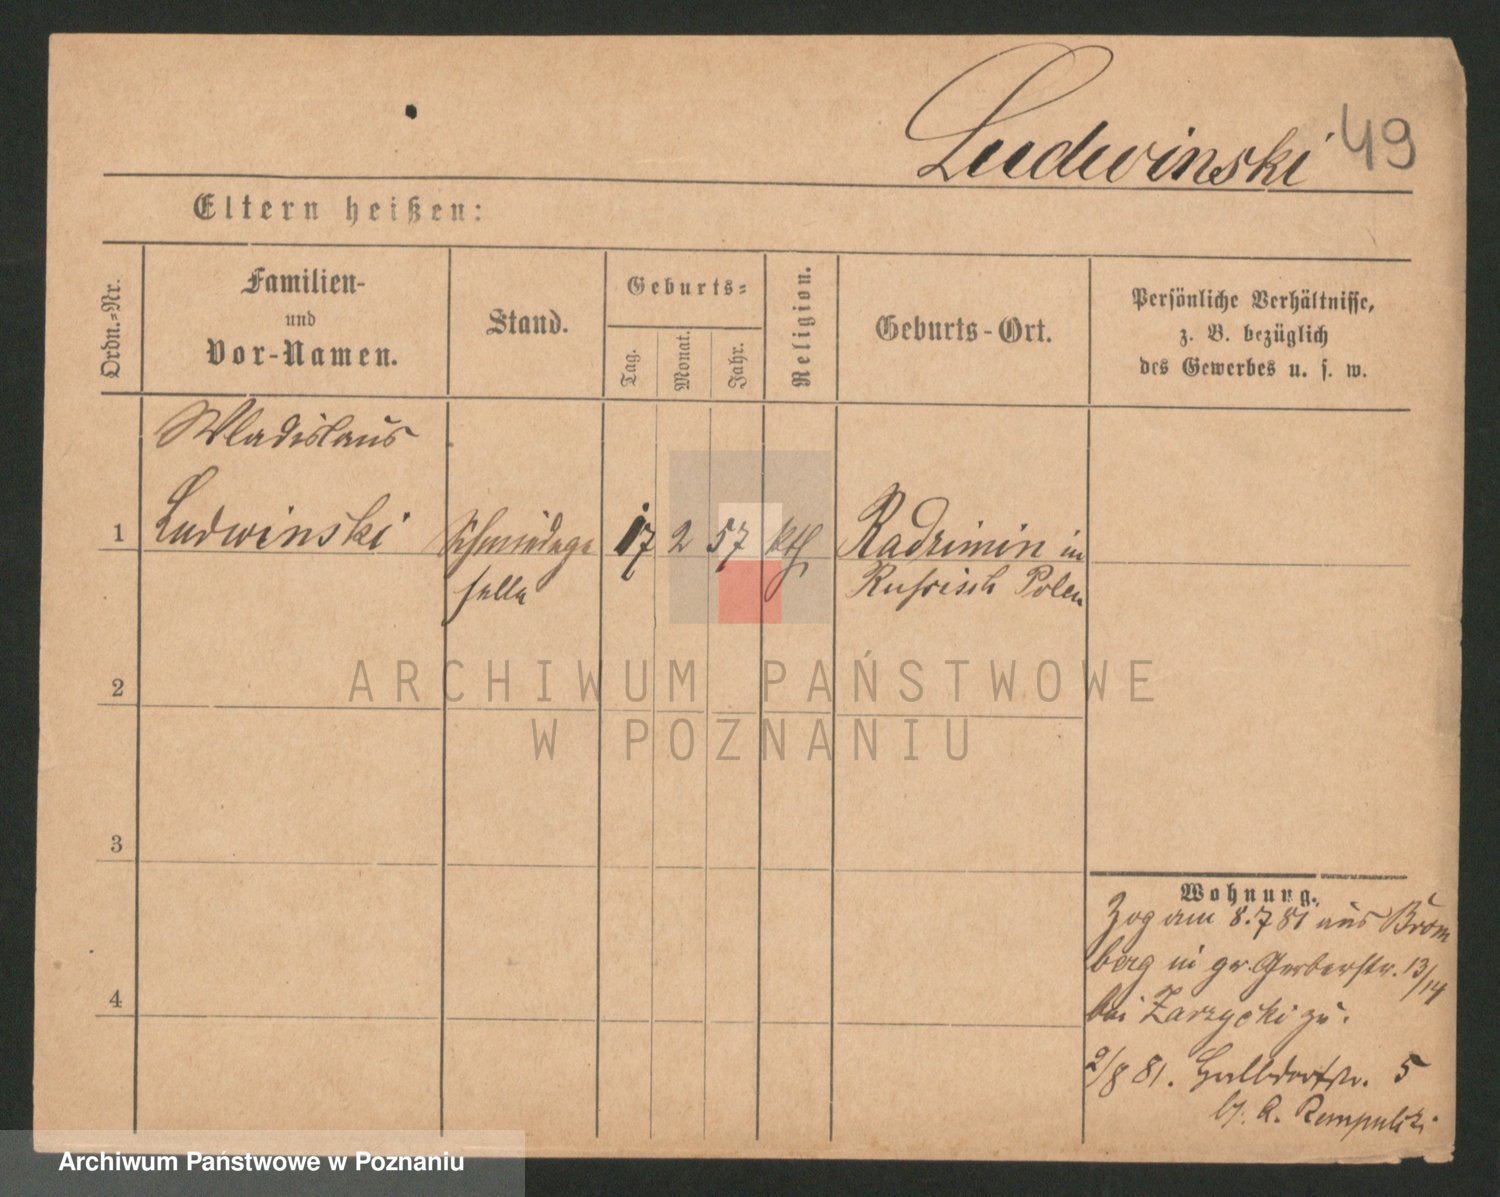 Ludwinski 49
Eltern heißen:
Ordn.-Nr.
Familien-
und
Vor-Namen.
Stand.
Geburts-
Tag.
Monat.
Jahr.
Religion.
Geburts-Ort.
Persönliche Verhältnisse,
z. B. bezüglich
des Gewerbes u. s. w.
Wladislaus
1 Ludwinski Schmiedege 17 2 57 kth Radzimin in
selle Russisch Polen
2
3
4
Wohnung.
Zog am 8.7 81 aus Brom
berg in gr. Gerberstr. 13/14
bei Zarzycki zu.
2/8 81. Halbdorfstr. 5
b. A.
ARCHIWUM PAŃSTWOWE
W POZNANIU
Archiwum Państwowe w Poznaniu